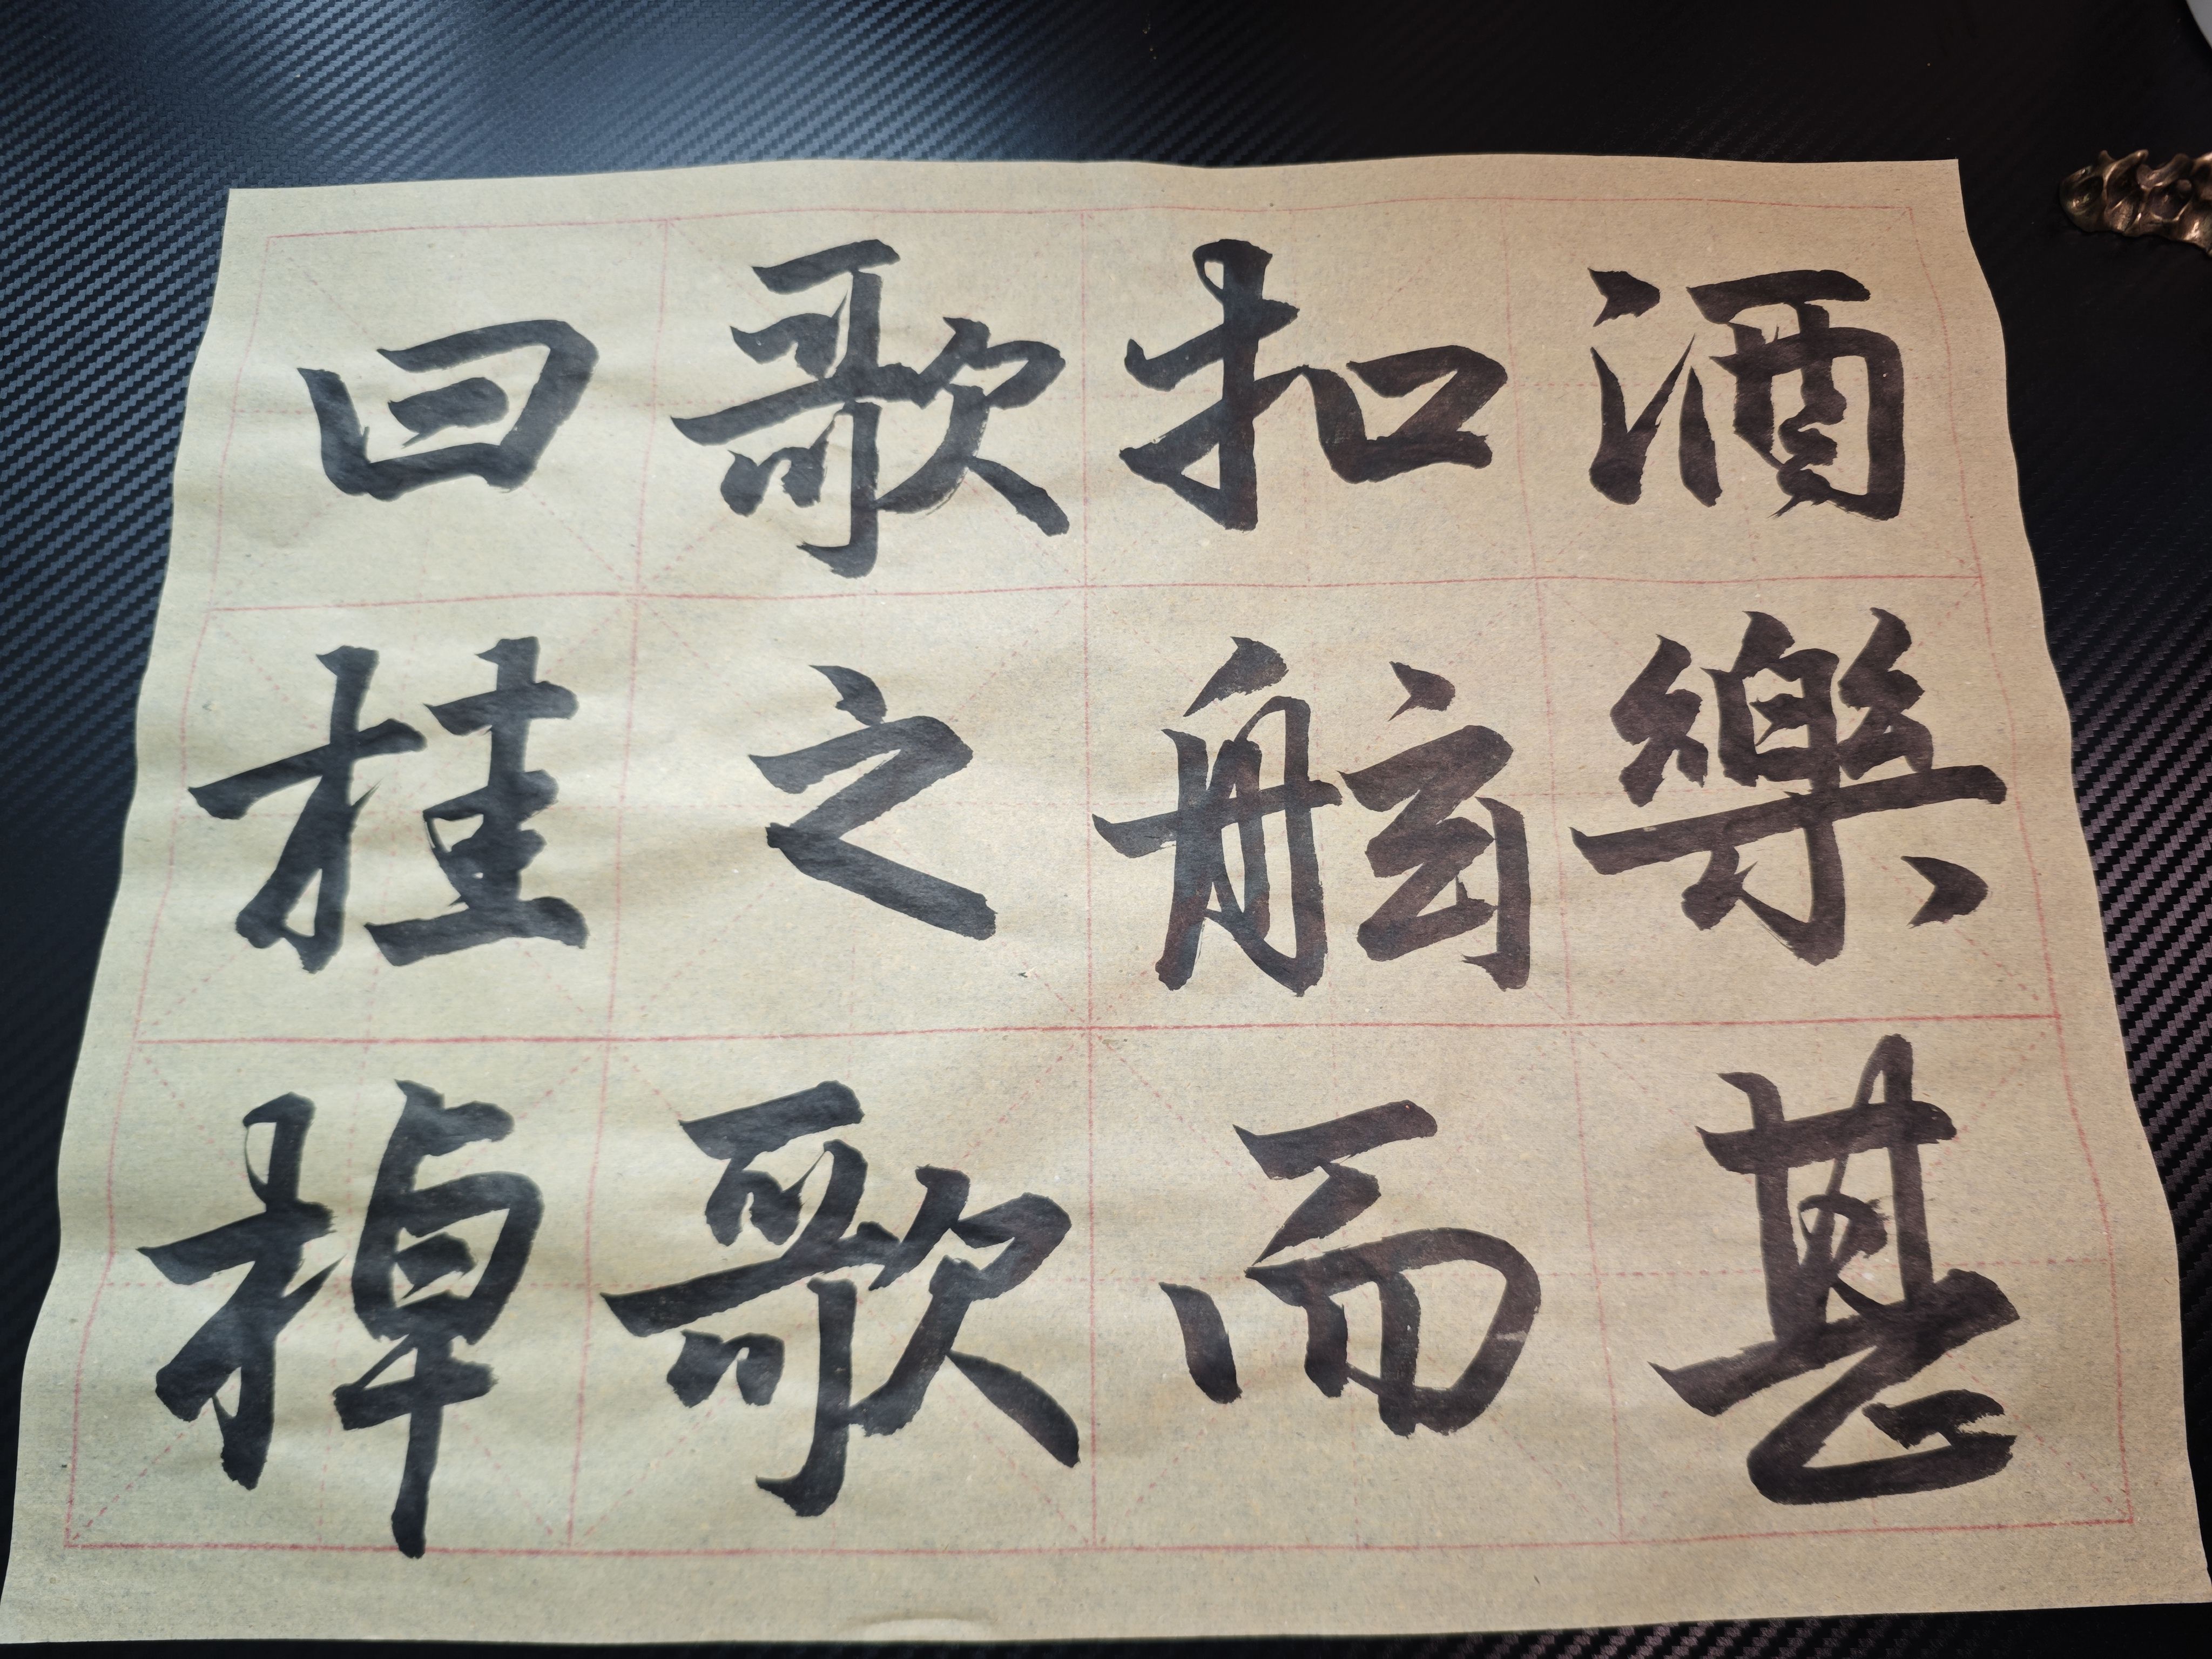 酒樂甚
扣舷而
歌之歌
曰桂棹